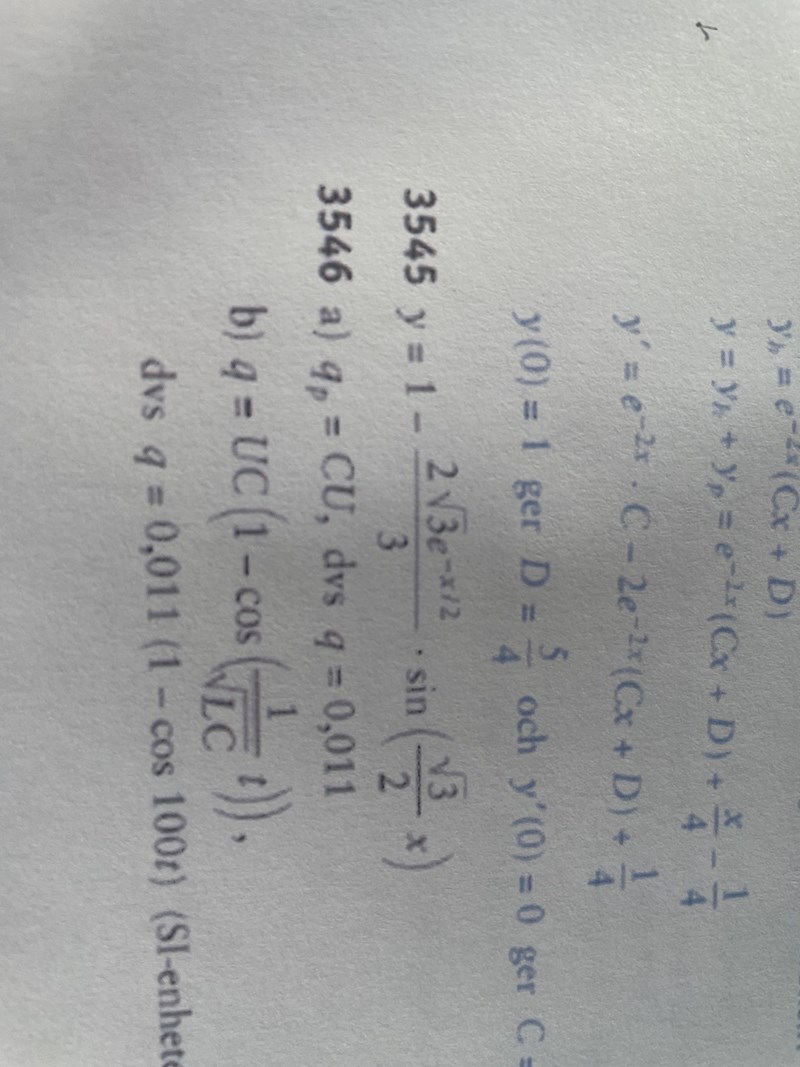 y_h = e^{-2x}(Cx + D)
y = y_h + y_p = e^{-2x}(Cx + D) + \frac{x}{4} - \frac{1}{4}
y′ = e^{-2x} · C − 2e^{-2x}(Cx + D) + \frac{1}{4}
y(0) = 1 ger D = \frac{5}{4} och y′(0) = 0 ger C =
3545 y = 1 − \frac{2√3e^{-x/2}}{3} · sin(\frac{√3}{2} x)
3546 a) q_p = CU, dvs q = 0,011
b) q = UC(1 − cos(\frac{1}{√LC} t)),
dvs q = 0,011 (1 − cos 100t) (SI-enhete